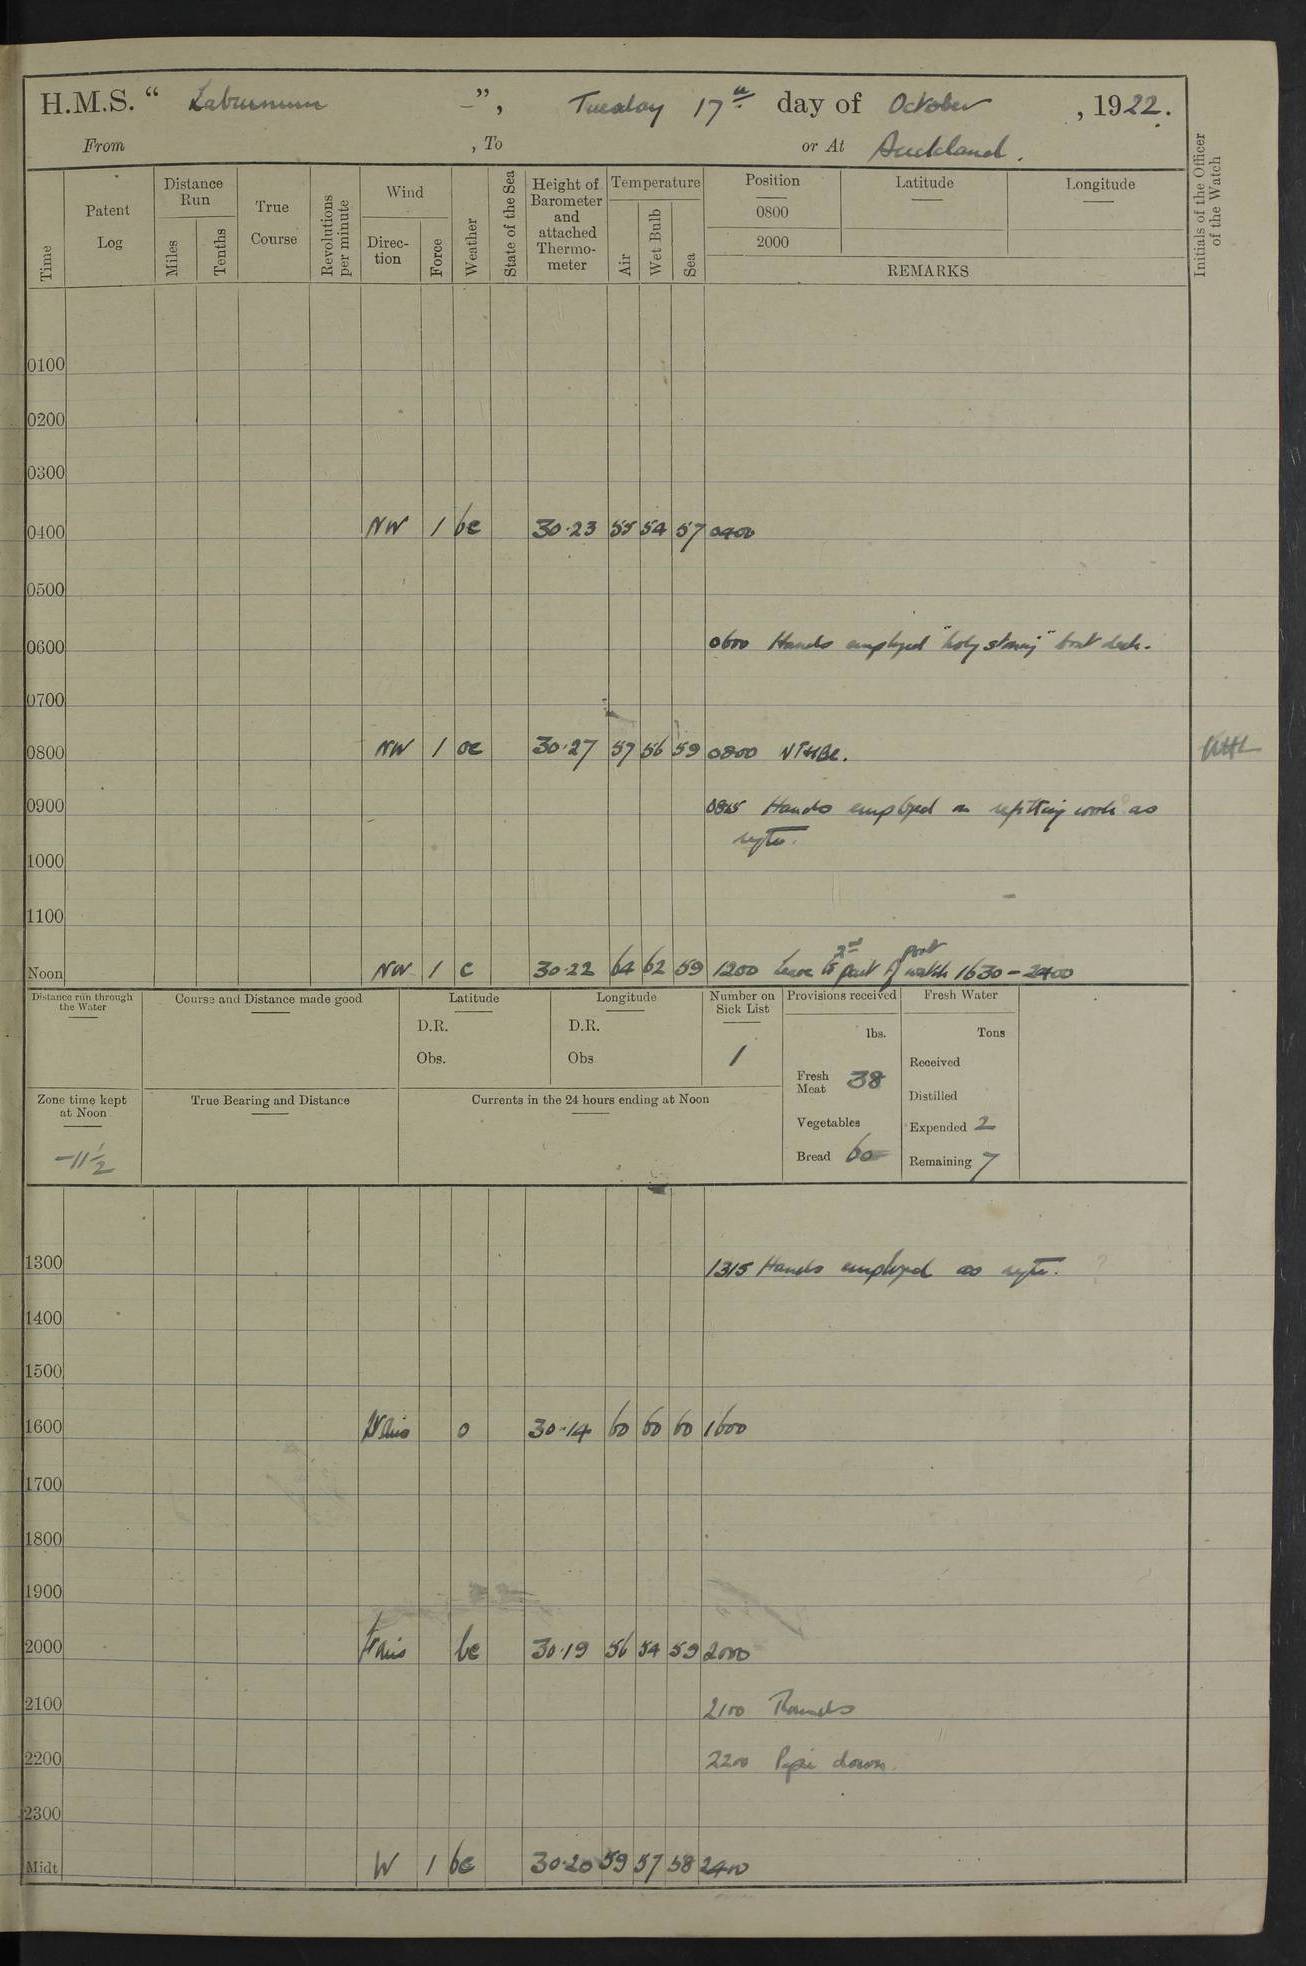 H.M.S. “ Laburnum –”, Tuesday 17th day of October , 1922.
From , To or At Auckland.
Time Patent Log Distance Run Miles Tenths True Course Revolutions per minute Wind Direc- tion Force Weather State of the Sea Height of Barometer and attached Thermo- meter Temperature Air Wet Bulb Sea Position Latitude Longitude
0800
2000
REMARKS
Initials of the Officer of the Watch
0100
0200
0300
0400 NW 1 bc 30.23 55 54 57 0400
0500
0600 0600 Hands employed "holystoning" boat deck.
0700
0800 NW 1 oc 30.27 57 56 59 0800
0900 0845 Hands employed on refitting work as
reqte.
1000
1100
Noon NW 1 c 30.22 64 62 59 1200 Leave to 2nd part of port watch 1630 – 2400
Distance run through the Water
Course and Distance made good
Latitude
D.R.
Obs.
Longitude
D.R.
Obs
Number on Sick List
1
Provisions received
lbs.
Fresh Meat 38
Vegetables
Bread 60
Fresh Water
Tons
Received
Distilled
Expended 2
Remaining 7
Zone time kept at Noon
–11½
True Bearing and Distance
Currents in the 24 hours ending at Noon
1300 1315 Hands employed as reqte.
1400
1500
1600 o 30.14 60 60 60 1600
1700
1800
1900
2000 bc 30.19 56 54 59 2000
2100 2100 Rounds
2200 2200 Pipe down.
2300
Midt W 1 bc 30.20 59 57 58 2400